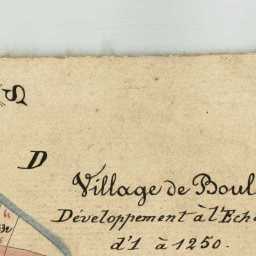 S
D
Village de Boul
Développement à l'Eche
d'1 à 1250.